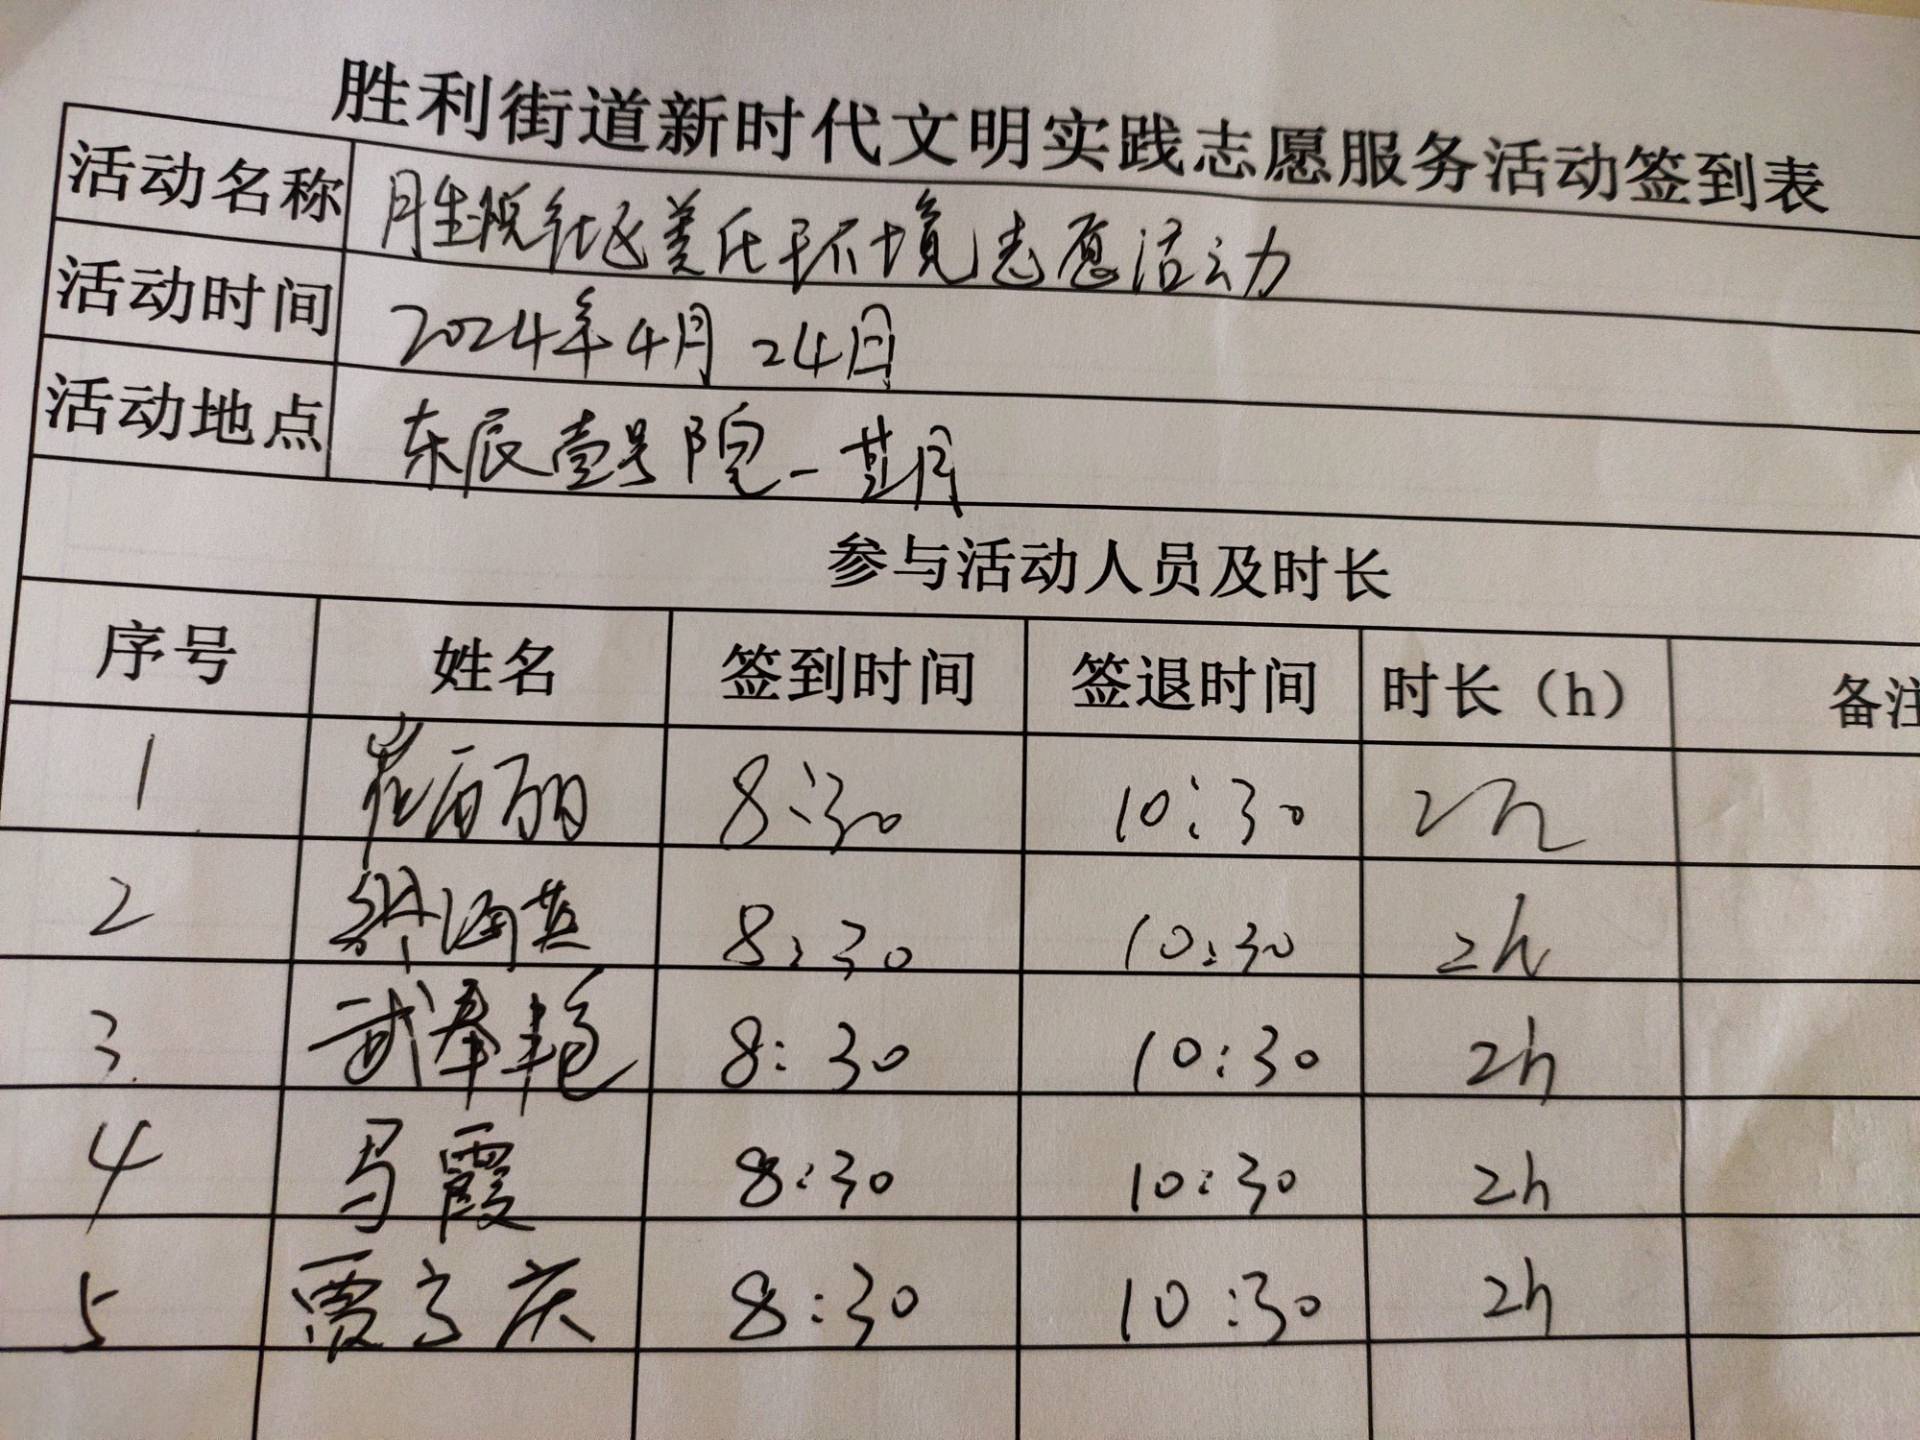 胜利街道新时代文明实践志愿服务活动签到表
活动名称 胜悦社区美化环境志愿活动
活动时间 2024年4月24日
活动地点 东辰壹号院一期
参与活动人员及时长
序号 姓名 签到时间 签退时间 时长（h） 备注
1 崔丽 8:30 10:30 2h
2 英 8:30 10:30 2h
3 武春艳 8:30 10:30 2h
4 马霞 8:30 10:30 2h
5 贾庆 8:30 10:30 2h